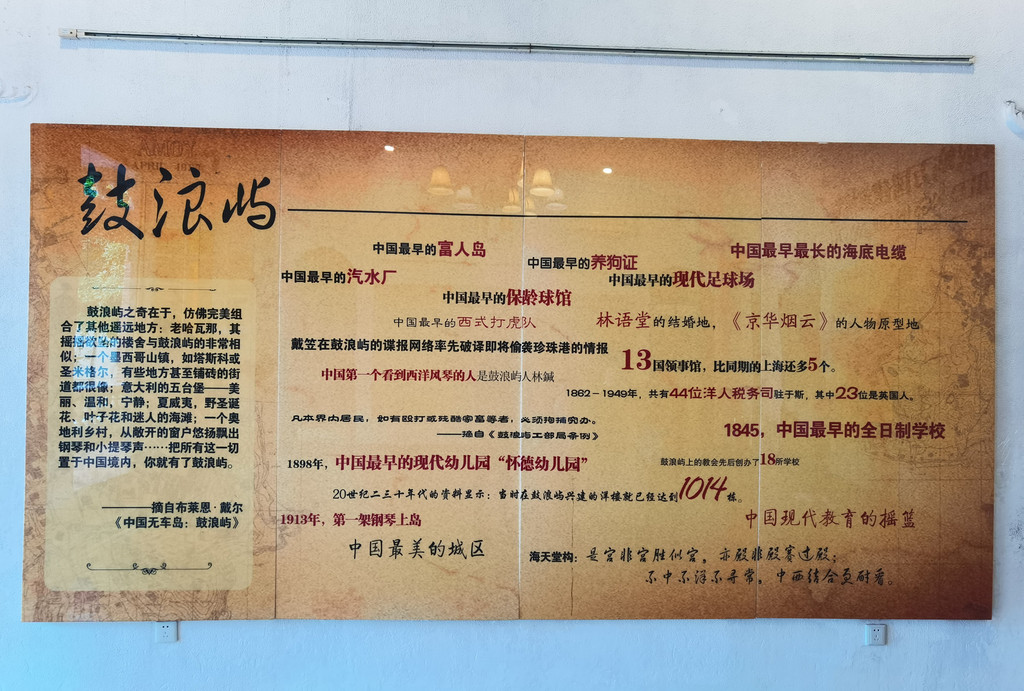 鼓浪屿
鼓浪屿之奇在于，仿佛完美组
合了其他遥远地方：老哈瓦那，其
摇摇欲坠的楼舍与鼓浪屿的非常相
似；一个墨西哥山镇，如塔斯科或
圣米格尔，有些地方甚至铺砖的街
道都很像；意大利的五台堡——美
丽、温和、宁静；夏威夷，野圣诞
花、叶子花和迷人的海滩；一个奥
地利乡村，从敞开的窗户悠扬飘出
钢琴和小提琴声……把所有这一切
置于中国境内，你就有了鼓浪屿。
————摘自布莱恩·戴尔
《中国无车岛：鼓浪屿》
中国最早的富人岛
中国最早的养狗证
中国最早最长的海底电缆
中国最早的汽水厂
中国最早的现代足球场
中国最早的保龄球馆
中国最早的西式打虎队
林语堂的结婚地，《京华烟云》的人物原型地
戴笠在鼓浪屿的谍报网络率先破译即将偷袭珍珠港的情报
13国领事馆，比同期的上海还多5个。
中国第一个看到西洋风琴的人是鼓浪屿人林鍼
1862－1949年，共有44位洋人税务司驻于斯，其中23位是英国人。
凡本界内居民，如有殴打或残酷家畜等者，必须拘捕究办。
——摘自《鼓浪屿工部局条例》
1845，中国最早的全日制学校
1898年，中国最早的现代幼儿园“怀德幼儿园”
鼓浪屿上的教会先后创办了18所学校
20世纪二三十年代的资料显示：当时在鼓浪屿兴建的洋楼就已经达到1014栋。
1913年，第一架钢琴上岛
中国现代教育的摇篮
中国最美的城区
海天堂构：是宫非宫胜似宫，亦殿非殿赛过殿；
不中不洋不寻常，中西结合更耐看。